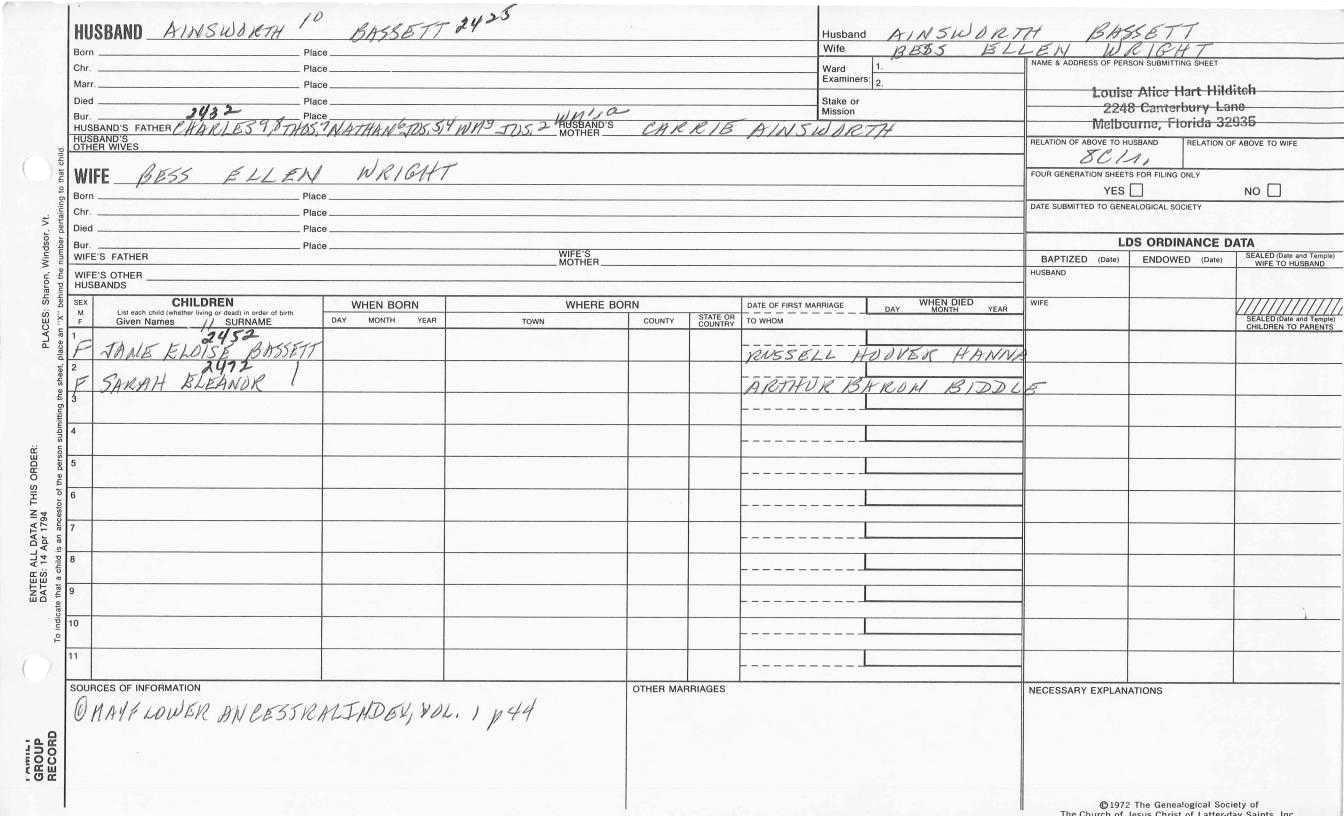 HUSBAND AINSWORTH 10 BASSETT 2425
Born Place
Chr. Place
Marr. Place
Died Place
Bur. Place
2432
HUSBAND'S FATHER CHARLES 9, 8 THOS, 7 NATHAN 6 JOS. 5, 4 WM 3 JOS. 2 WM 1
HUSBAND'S MOTHER CARRIE AINSWORTH
HUSBAND'S OTHER WIVES
WIFE BESS ELLEN WRIGHT
Born Place
Chr. Place
Died Place
Bur. Place
WIFE'S FATHER
WIFE'S MOTHER
WIFE'S OTHER HUSBANDS
Husband AINSWORTH BASSETT
Wife BESS ELLEN WRIGHT
Ward Examiners 1.
2.
Stake or Mission
NAME & ADDRESS OF PERSON SUBMITTING SHEET
Louise Alice Hart Hilditch
2248 Canterbury Lane
Melbourne, Florida 32935
RELATION OF ABOVE TO HUSBAND RELATION OF ABOVE TO WIFE
FOUR GENERATION SHEETS FOR FILING ONLY
YES NO
DATE SUBMITTED TO GENEALOGICAL SOCIETY
LDS ORDINANCE DATA
BAPTIZED (Date) ENDOWED (Date) SEALED (Date and Temple) WIFE TO HUSBAND
HUSBAND
WIFE
SEALED (Date and Temple) CHILDREN TO PARENTS
SEX M F
CHILDREN
List each child (whether living or dead) in order of birth
Given Names 11 SURNAME
WHEN BORN
DAY MONTH YEAR
WHERE BORN
TOWN COUNTY STATE OR COUNTRY
DATE OF FIRST MARRIAGE
TO WHOM
WHEN DIED
DAY MONTH YEAR
2452
1 F JANE ELOISE BASSETT RUSSELL HOOVER HANNA
2472
2 F SARAH ELEANOR ARTHUR BAROM BIDDLE
3
4
5
6
7
8
9
10
11
SOURCES OF INFORMATION
① MAYFLOWER ANCESSRAL INDEX, VOL. 1 p44
OTHER MARRIAGES
NECESSARY EXPLANATIONS
©1972 The Genealogical Society of
The Church of Jesus Christ of Latter-day Saints, Inc.
PLACES: Sharon, Windsor, Vt.
ENTER ALL DATA IN THIS ORDER:
DATES: 14 Apr 1794
To indicate that a child is an ancestor of the person submitting the sheet, place an "X" behind the number pertaining to that child.
FAMILY GROUP RECORD